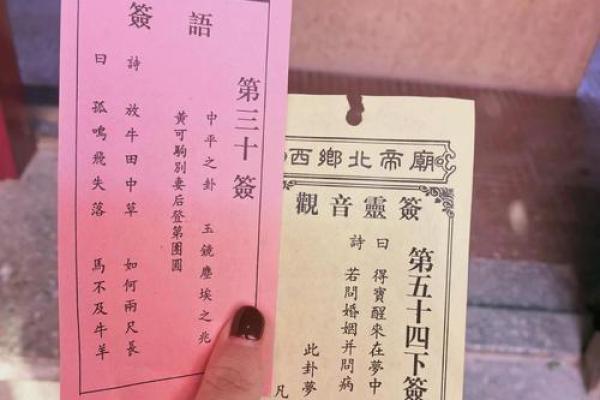 簽語
第三十簽
中平之卦 玉鏡塵埃之兆
黃可駒別妻后登第團圓
詩 放牛田中草 如何兩尺長
曰 孤鳴飛失落 馬不及牛羊
西鄉北帝廟
觀音靈簽
第五十四下簽
曰 得寶醒來在夢中
詩 若問婚姻并問病
此卦夢
凡